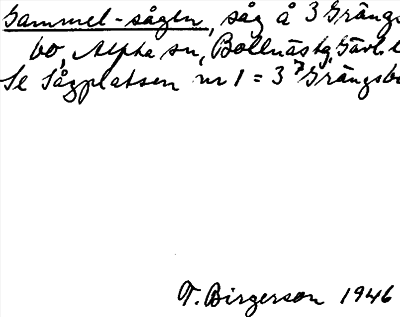 Gammel-sågen, såg å 3 Grängs
bo, Alfta sn, Bollnäs tg, Gävl. l
Se Sågplatsen nr 1 = 3 7 Grängsb
T. Birgerson 1946